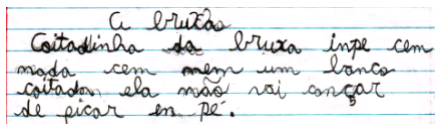 A bruxas
Coitadinha da bruxa inpe cem
nada cem nem um banco
coitadon ela não vai cançar
de picar en pé.